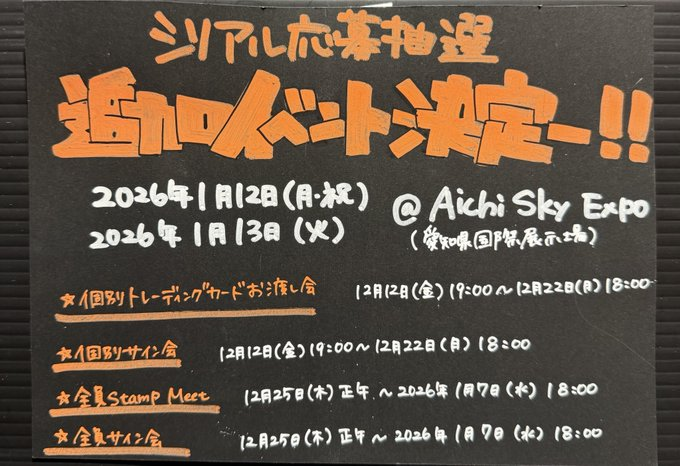 シリアル応募抽選
追加イベント決定ー!!
2026年1月12日(月・祝)
2026年1月13日(火)
@ Aichi Sky Expo
(愛知県国際展示場)
☆個別トレーディングカードお渡し会 12月12日(金) 19:00～12月22日(月) 18:00
☆個別サイン会 12月12日(金) 19:00～12月22日(月) 18:00
☆全員Stamp Meet 12月25日(木) 正午 ～2026年1月7日(水) 18:00
☆全員サイン会 12月25日(木) 正午 ～2026年1月7日(水) 18:00